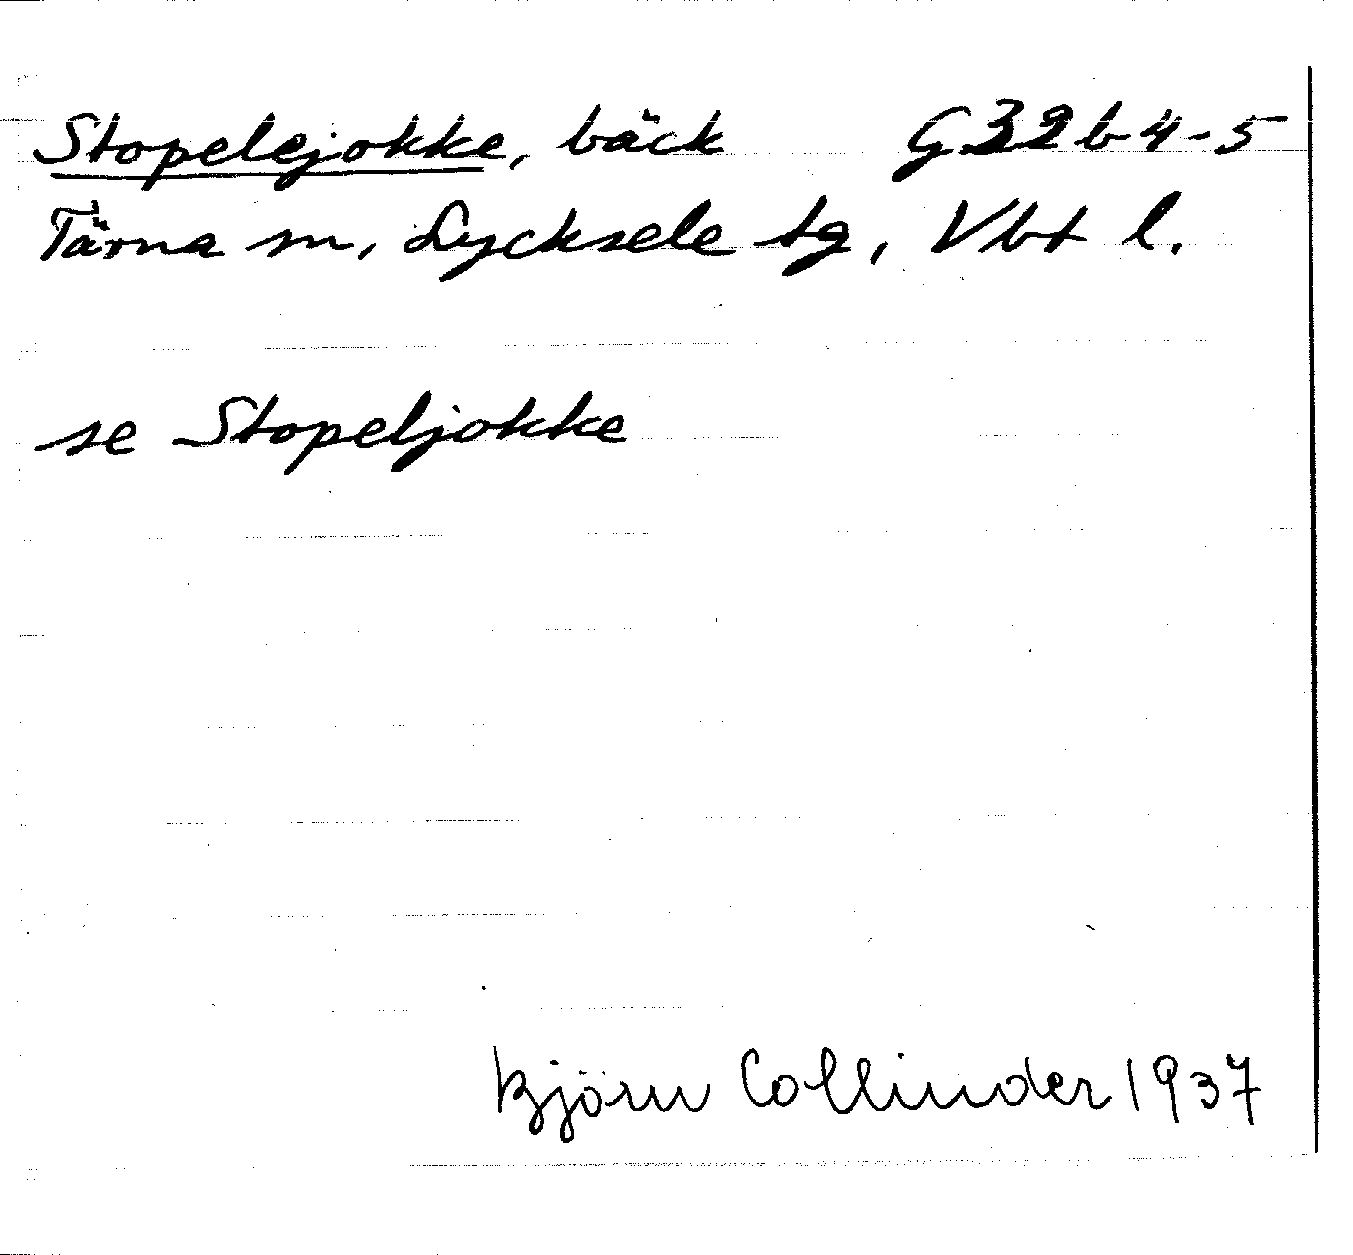 Stopelejokke, bäck G32b4-5
Tärna sn, Lycksele tg, Vbt l.
se Stopeljokke
Björn Collinder 1937